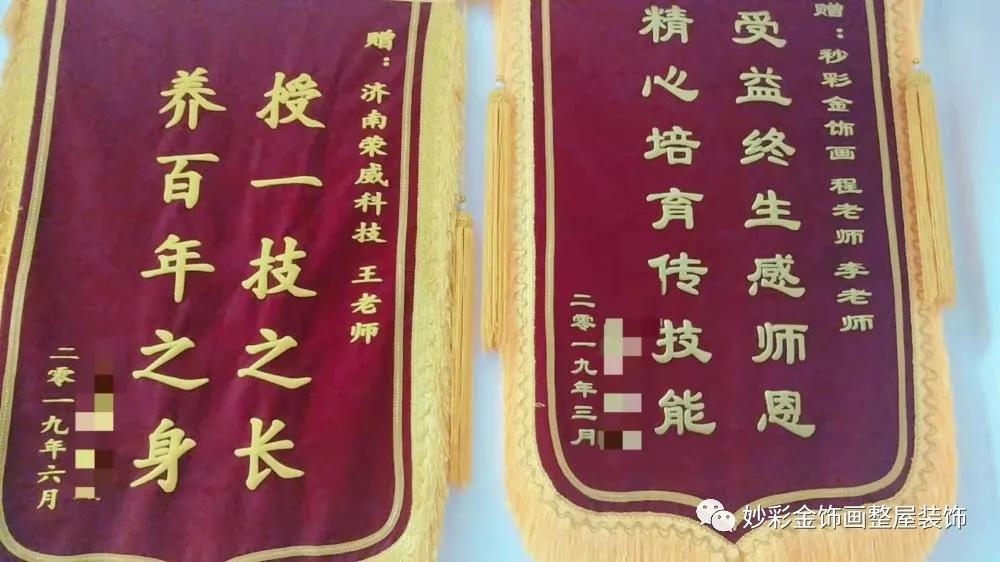 赠：济南荣威科技 王老师
授一技之长
养百年之身
二零一九年六月
赠：秒彩金饰画程老师李老师
受益终生感师恩
精心培育传技能
二零一九年三月
妙彩金饰画整屋装饰